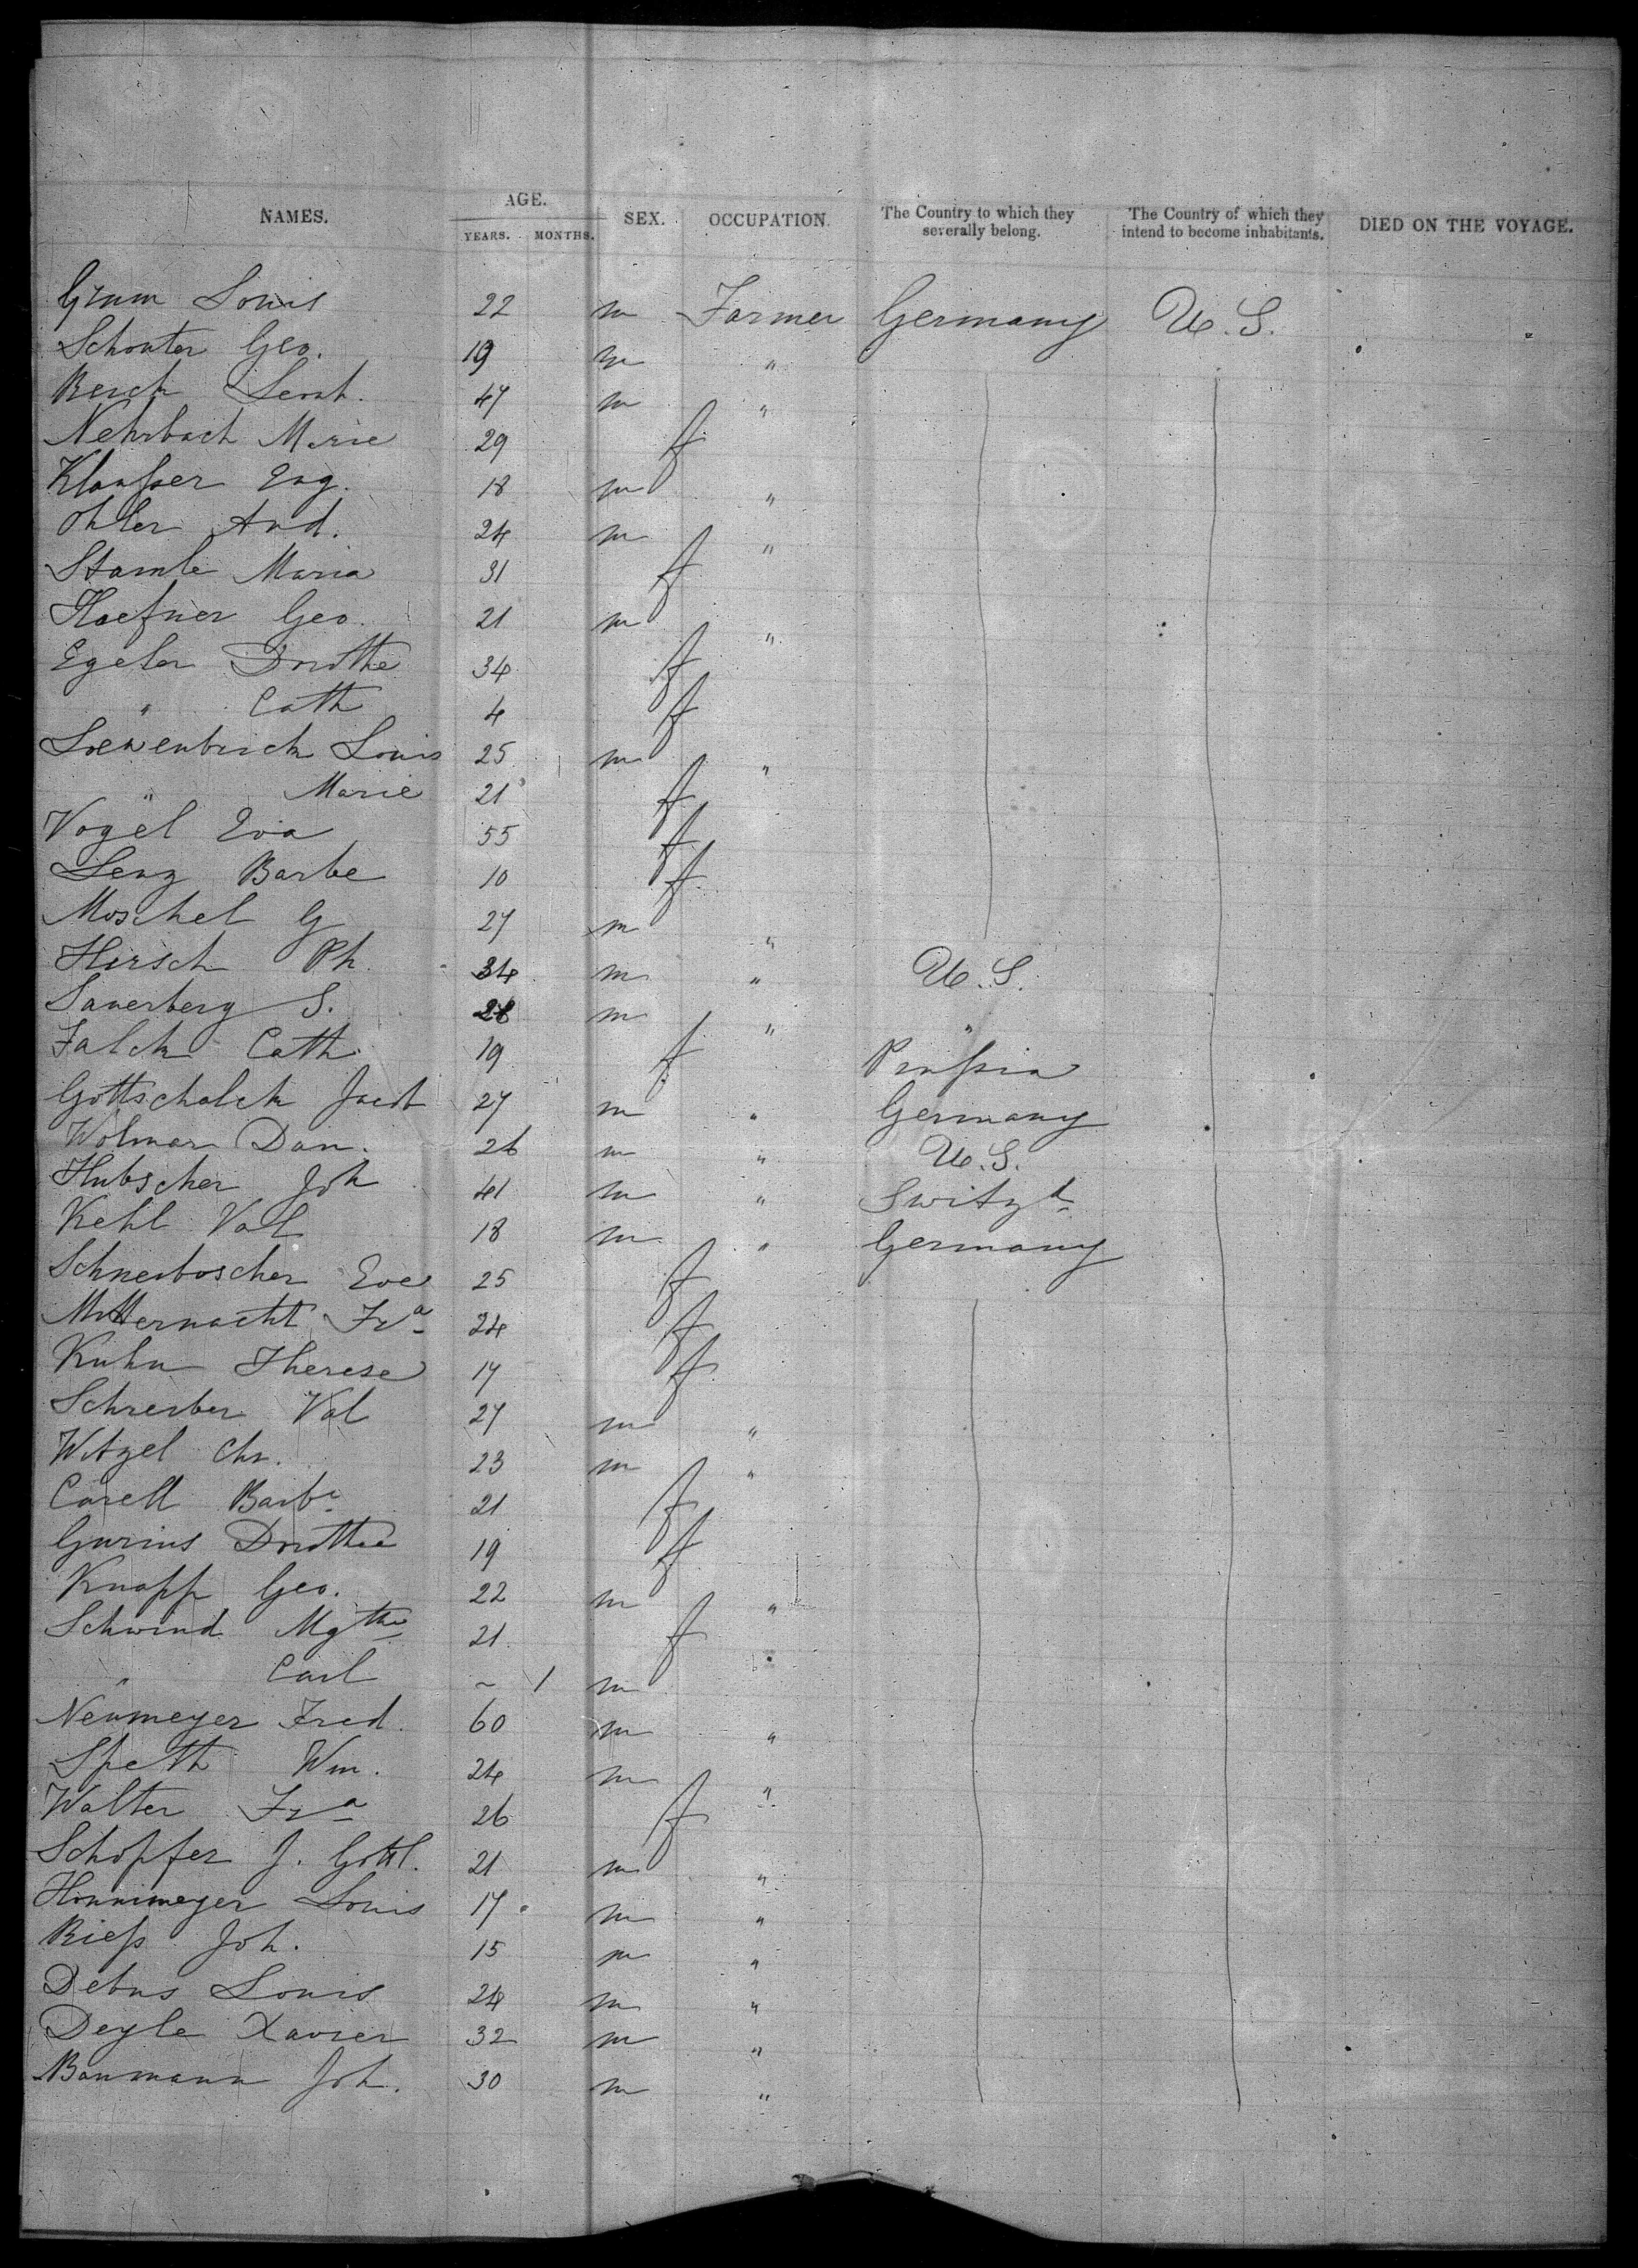 NAMES. AGE. YEARS. MONTHS. SEX. OCCUPATION. The Country to which they severally belong. The Country of which they intend to become inhabitants. DIED ON THE VOYAGE.
Grum Louis 22 m Farmer Germany U.S.
Schonter Geo. 19 m "
Berck 47 m "
Nehrbach Marie 29 f
Klausser Eug. 18 m "
Ohler And. 24 m "
Stamle Maria 31 f
Haefner Geo. 21 m "
Egeler Drothe 34 f
" Cath 4 f
Loewenbrick Louis 25 m "
" Marie 21 f
Vogel Eva 55 f
Lenz Barbe 10 f
Moschel G 27 m "
Hirsch Ph. 34 m " U.S.
Sauerberg S. 28 m " "
Falck Cath 19 f Prussia
Gottschalck Jacob 27 m " Germany
Wolmar Dan. 26 m " U.S.
Hubscher Joh 41 m " Switzd
Kehl Val 18 m " Germany
Schnerboscher Eve 25 f
Mitternacht Fra 24 f
Kuhn Therese 17 f
Schreiber Val 27 m "
Witzel Chr. 23 m "
Carell Barbe 21 f
Gurius Drothee 19 f
Knapp Geo. 22 m "
Schwind Mgthe 21 f
" Carl ~ 1 m
Neumeyer Fred. 60 m "
Speth Wm. 24 m "
Walter Fra 26 f
Schopfer J. Gottl. 21 m "
Honnimeyer Louis 17 m "
Riess Joh. 15 m "
Debus Louis 24 m "
Deyle Xavier 32 m "
Baumann Joh. 30 m "